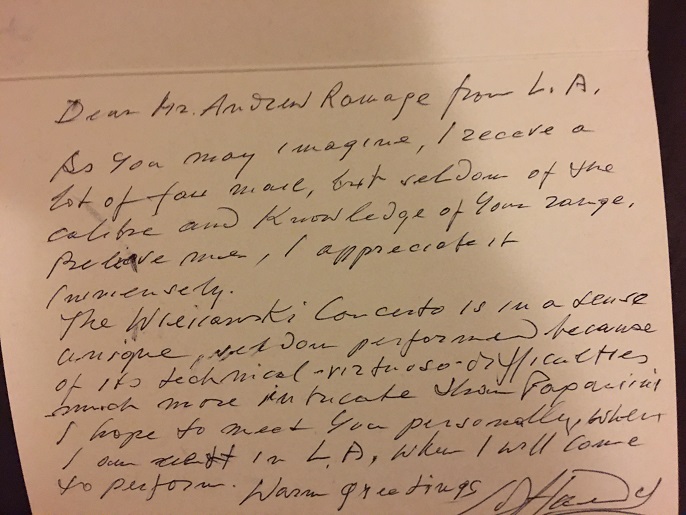 Dear Mr. Andrew Ramage from L. A.
As You may imagine, I receve a
lot of fan mail, but seldom of the
calibre and Knowledge of Your range.
Believe me, I appreciate it
immensely.
The Wieniawski Concerto is in a sense
unique, seldom performed because
of its technical-virtuoso-difficulties
much more intricate than Paganini
I hope to meet You personally, when
I am in L. A, when I will come
to perform. Warm greetings